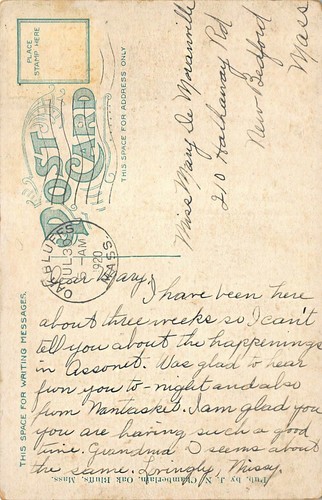 PLACE
STAMP HERE
POST
CARD
THIS SPACE FOR ADDRESS ONLY
OAK BLUFFS
JUL 3
5 - AM
1920
MASS.
Miss Mary De Moranville
210 Hathaway Rd
New Bedford
Mass
THIS SPACE FOR WRITING MESSAGES.
Dear Mary,
I have been here
about three weeks so I can't
tell you about the happenings
in Assonet. Was glad to hear
from you to-night and also
from Nantasket. I am glad you
you are having such a good
time. Grandma D seems about
the same. Lovingly, Missy.
Pub. by J. N. Chamberlain, Oak Bluffs, Mass.